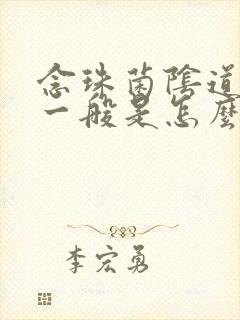 念珠菌陰道
一般是怎麼
李宏勇